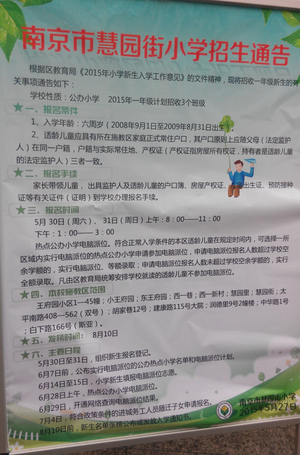 南京市慧园街小学招生通告
根据区教育局《2015年小学新生入学工作意见》的文件精神，现将招收一年级新生的有
关事项通告如下：
学校性质：公办小学 2015年一年级计划招收3个班级
★一、报名条件
1、入学年龄：六周岁（2008年9月1日至2009年8月31日出生）。
2、适龄儿童应具有所在施教区家庭正式常住户口，其户口原则上应随父母（法定监护
人）在同一户籍，户籍与实际常住地、产权证（产权证指房屋所有权证，持有者是适龄儿童
的法定监护人）三者一致。
★二、报名手续
家长带领儿童，出具监护人及适龄儿童的户口簿、房屋产权证、出生证、预防接种
证等有关证件（证明）到学校办理报名手续。
★三、报名时间
5月 30日（周六）、 31日（周日）上午：8：00——11：00
下午：1：00—— 3：00
热点公办小学电脑派位。符合正常入学条件的本区适龄儿童在规定时间内，可选择一所
区域内实行电脑派位的热点公办小学申请参加电脑派位，申请电脑派位报名人数超过学校空
余学额的，实行电脑派位、等额录取；申请电脑派位报名人数未超过学校空余学额的，实行
全额录取。凡由区教育局统筹安排学校就读的适龄儿童不参加电脑派位。
★四、本校施教区范围
王府园小区1—45幢；小王府园；东王府园；西一巷；西一新村；慧园里；慧园街；太
平南路408—562（双号）；胡家巷12号；建康路115号大院；润德里9号2幢楼；中华路1号
；白下路166号（斯亚）。
★五、发榜时间： 8月10日
★六、主要日程
5月30日至31日，组织新生报名登记。
6月7日前，公布实行电脑派位的公办热点小学名单和电脑派位计划。
6月14日至15日，小学新生填报电脑派位志愿。
6月28日上午，热点公办小学电脑派位。
6月29日，开通网络查询电脑派位结果。
7月4日：符合政策条件的进城务工人员随迁子女申请报名。
8月10日前，新生名单张榜公布或发放入学通知书。
南京市慧园街小学
2015年5月27日